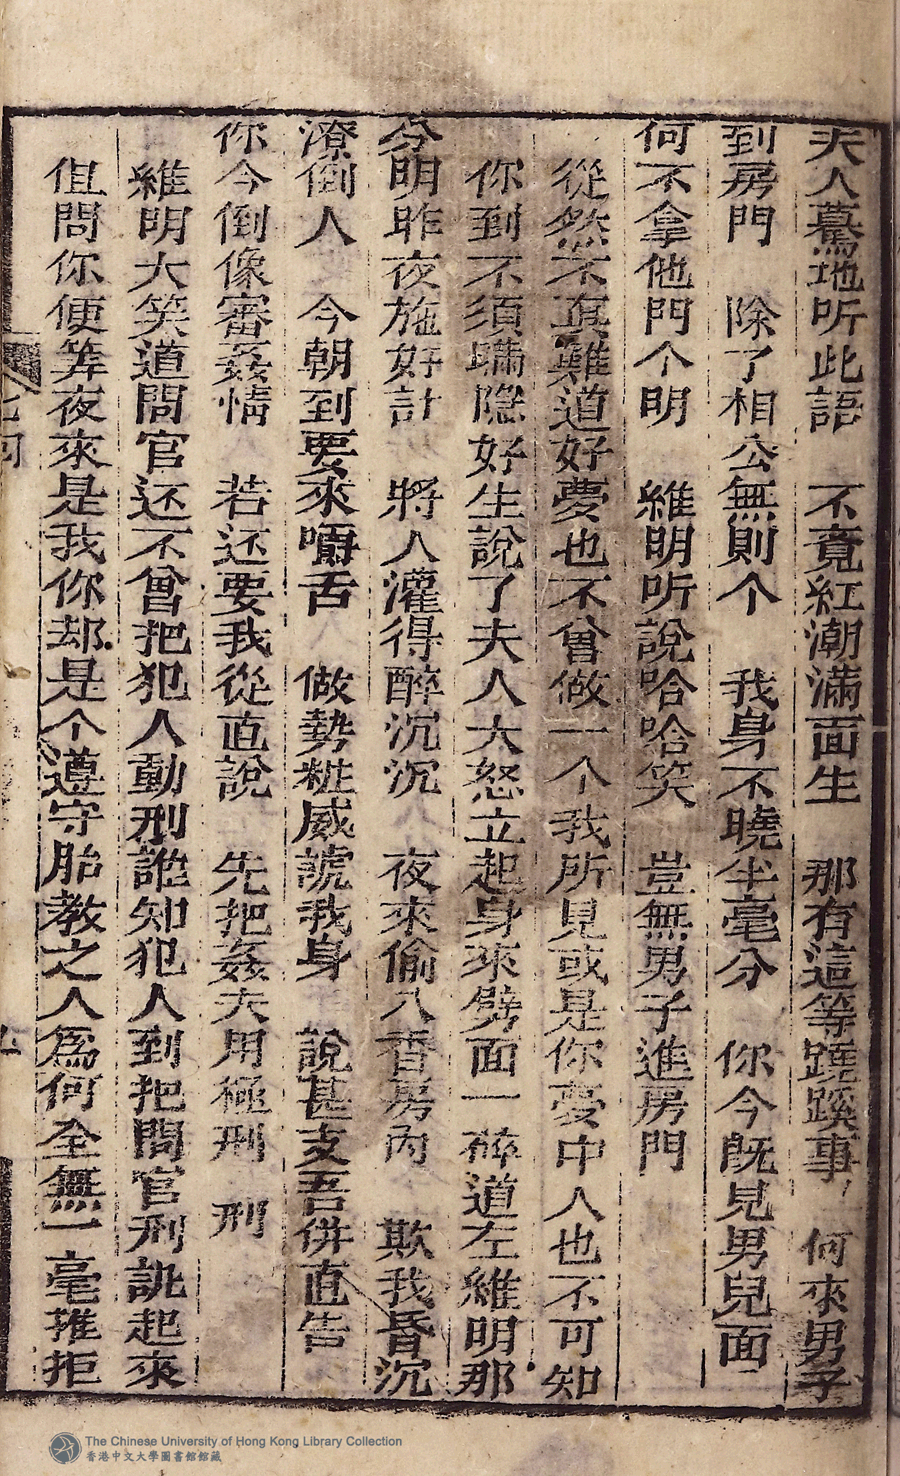 夫人驀地听此語　不竟紅潮滿面生　那有這等蹺蹊事　何來男子
到房門　除了相公無則个　我身不曉半毫分　你今既見男兒面
何不拿他門个明　維明听說哈哈笑　豈無男子進房門
從然不真難道好夢也不曾做一个我所見或是你夢中人也不可知
你到不須瞞隐好生說了夫人大怒立起身來劈面一啐道左維明那
分明昨夜施奸計　將人灌得醉沉沉　夜來偷入香房內　欺我昏沉
潦倒人　今朝到要來嚼舌　做勢粧威諕我身　說甚支吾併直告
你今倒像審姦情　若还要我從直說　先把姦夫用極刑　刑
維明大笑道問官还不曾把犯人動刑誰知犯人到把問官刑訊起來
但問你便筭夜來是我你却是个遵守胎教之人爲何全無一毫推拒
The Chinese University of Hong Kong Library Collection
香港中文大學圖書館館藏